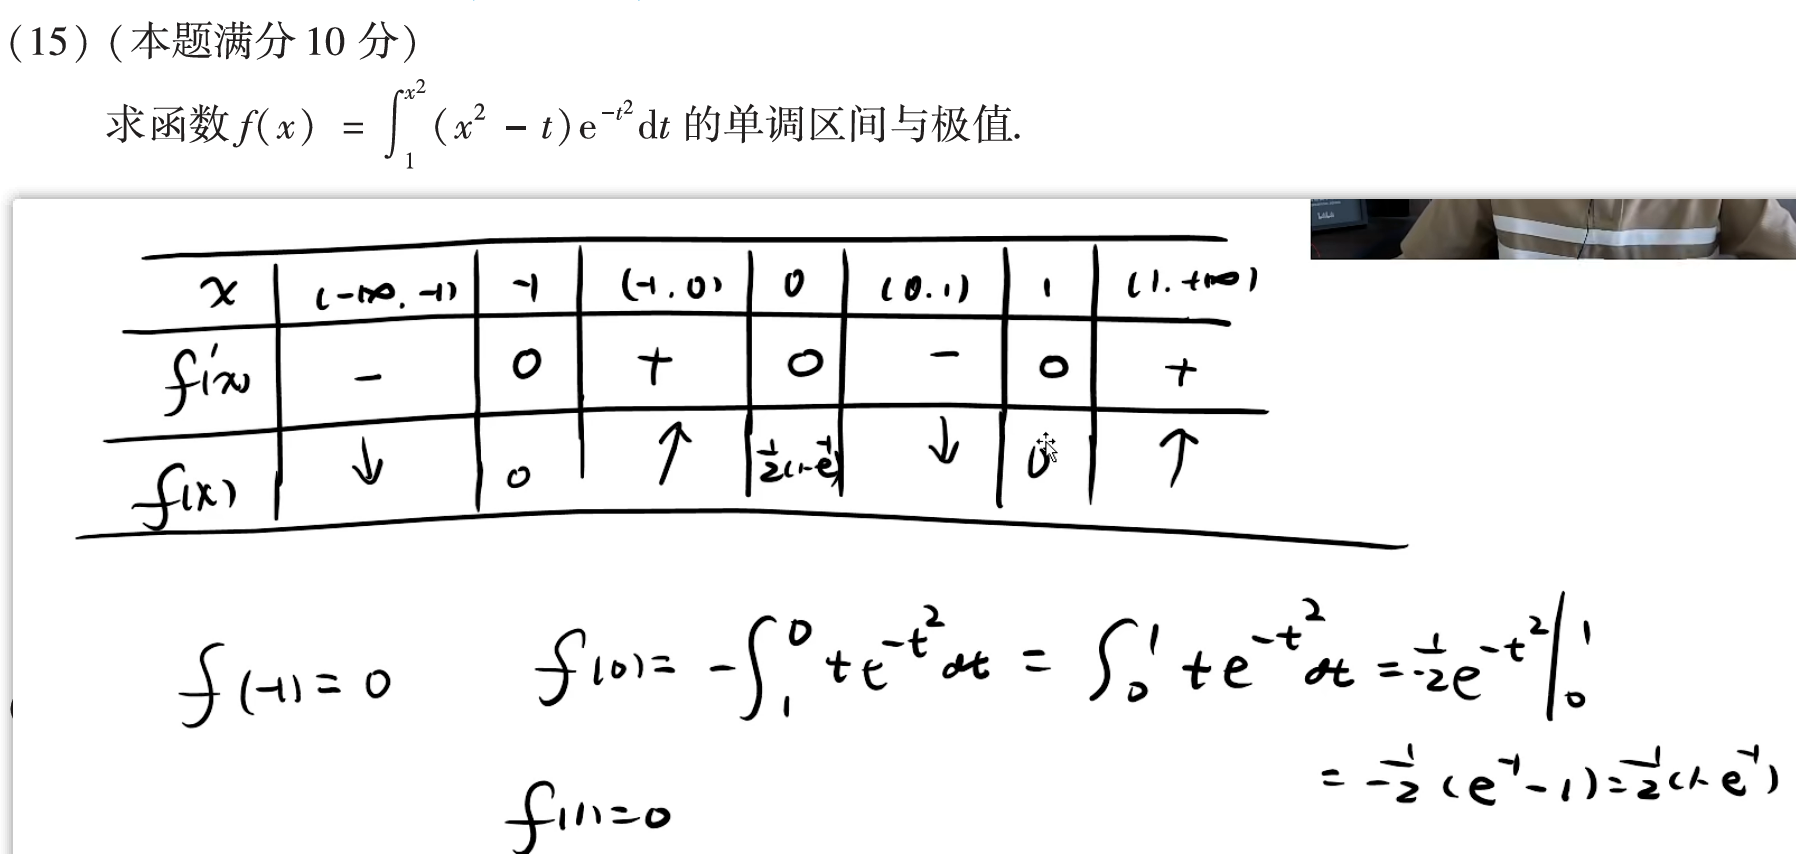 (15) (本题满分 10 分)
求函数 f(x) = ∫₁^{x²} (x² − t)e^{−t²}dt 的单调区间与极值.
x | (-∞, -1) | -1 | (-1, 0) | 0 | (0, 1) | 1 | (1, +∞)
f'(x) | − | 0 | + | 0 | − | 0 | +
f(x) | ↓ | 0 | ↑ | 1/2(1-e^{-1}) | ↓ | 0 | ↑
f(-1) = 0 f(0) = -∫₁^0 te^{-t²}dt = ∫₀^1 te^{-t²}dt = 1/-2 e^{-t²}|₀^1
= -1/2 (e^{-1} - 1) = 1/2 (1-e^{-1})
f(1) = 0